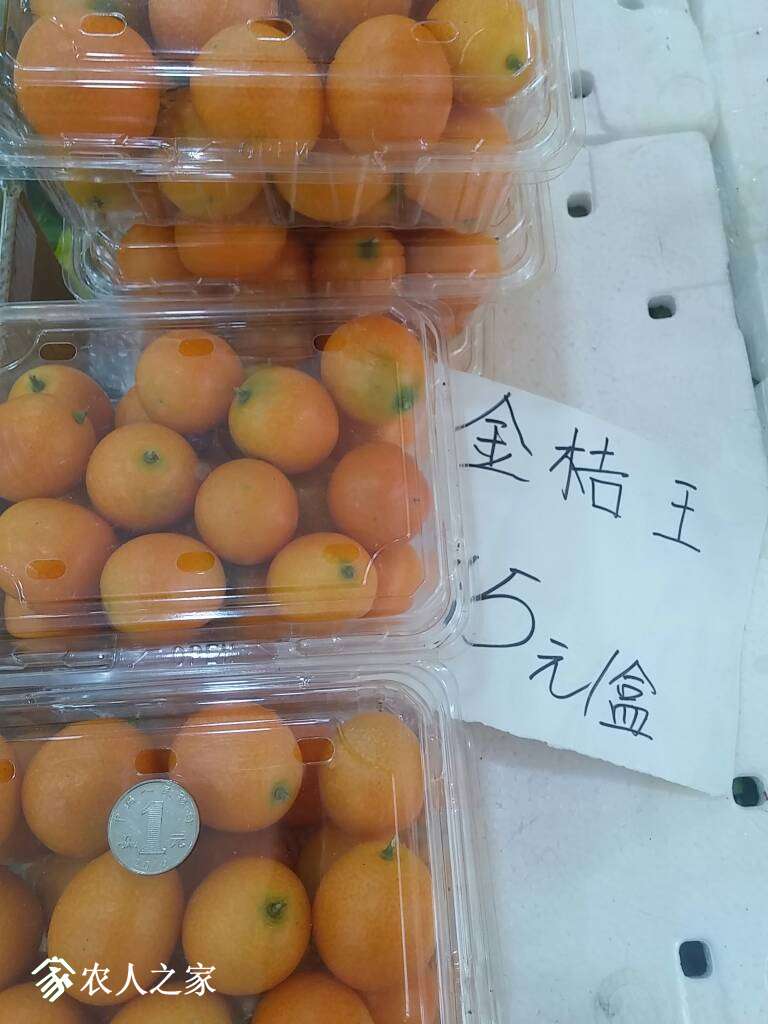 金桔王
5元/盒
1
元
农人之家